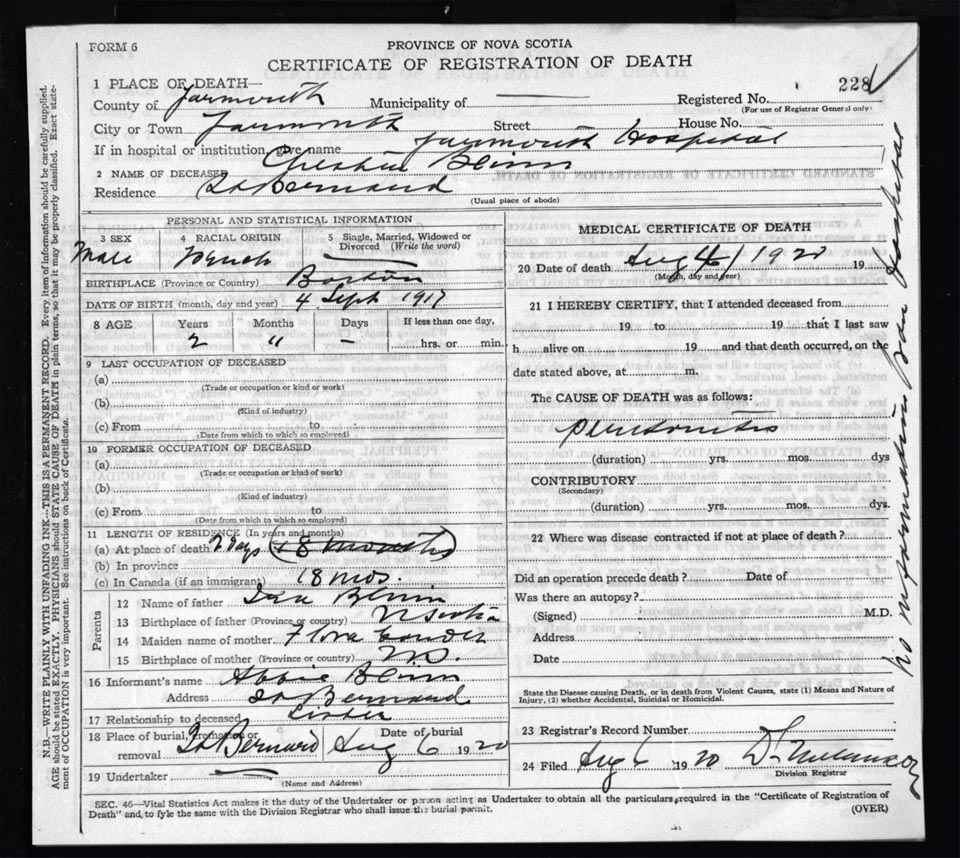 FORM 6
PROVINCE OF NOVA SCOTIA
CERTIFICATE OF REGISTRATION OF DEATH
228
1 PLACE OF DEATH—
County of Yarmouth Municipality of
Registered No.
(For use of Registrar General only)
City or Town Yarmouth Street House No.
If in hospital or institution, give name Yarmouth Hospital
2 NAME OF DECEASED
Residence St Bernard
(Usual place of abode)
PERSONAL AND STATISTICAL INFORMATION
3 SEX 4 RACIAL ORIGIN 5 Single, Married, Widowed or Divorced (Write the word)
Male French
BIRTHPLACE (Province or Country) Boston
DATE OF BIRTH (month, day and year) 4 Sept 1917
8 AGE Years Months Days If less than one day,
2 " — hrs. or min.
9 LAST OCCUPATION OF DECEASED
(a)
(Trade or occupation or kind or work)
(b)
(Kind of industry)
(c) From to
(Date from which to which so employed)
10 FORMER OCCUPATION OF DECEASED
(a)
(Trade or occupation or kind of work)
(b)
(Kind of industry)
(c) From to
(Date from which to which so employed)
11 LENGTH OF RESIDENCE (In years and months)
(a) At place of death 2 days (18 months)
(b) In province
(c) In Canada (if an immigrant) 18 mos.
Parents
12 Name of father
13 Birthplace of father (Province or country) N Scotia
14 Maiden name of mother Flora
15 Birthplace of mother (Province or country) N.S.
16 Informant's name Abbie
Address St Bernard
17 Relationship to deceased Sister
18 Place of burial, cremation or removal St Bernard
Date of burial Aug 6 1920
19 Undertaker
(Name and Address)
MEDICAL CERTIFICATE OF DEATH
20 Date of death Aug 4 / 1920 19
(Month, day and year)
21 I HEREBY CERTIFY, that I attended deceased from
19 to 19 that I last saw
h alive on 19 and that death occurred, on the
date stated above, at m.
The CAUSE OF DEATH was as follows:
peritonitis
(duration) yrs. mos. dys
CONTRIBUTORY
(Secondary)
(duration) yrs. mos. dys.
22 Where was disease contracted if not at place of death?
Did an operation precede death? Date of
Was there an autopsy?
(Signed) M.D.
Address
Date
State the Disease causing Death, or in death from Violent Causes, state (1) Means and Nature of
Injury, (2) whether Accidental, Suicidal or Homicidal.
23 Registrar's Record Number
24 Filed Aug 6 1920
Division Registrar
SEC. 46—Vital Statistics Act makes it the duty of the Undertaker or person acting as Undertaker to obtain all the particulars required in the "Certificate of Registration of
Death" and to fyle the same with the Division Registrar who shall issue the burial permit.
(OVER)
N.B.—WRITE PLAINLY WITH UNFADING INK—THIS IS A PERMANENT RECORD. Every item of information should be carefully supplied.
AGE should be stated EXACTLY. PHYSICIANS should STATE CAUSE OF DEATH in plain terms, so that it may be properly classified. Exact state-
ment of OCCUPATION is very important. See instructions on back of Certificate.
No information from Hospital